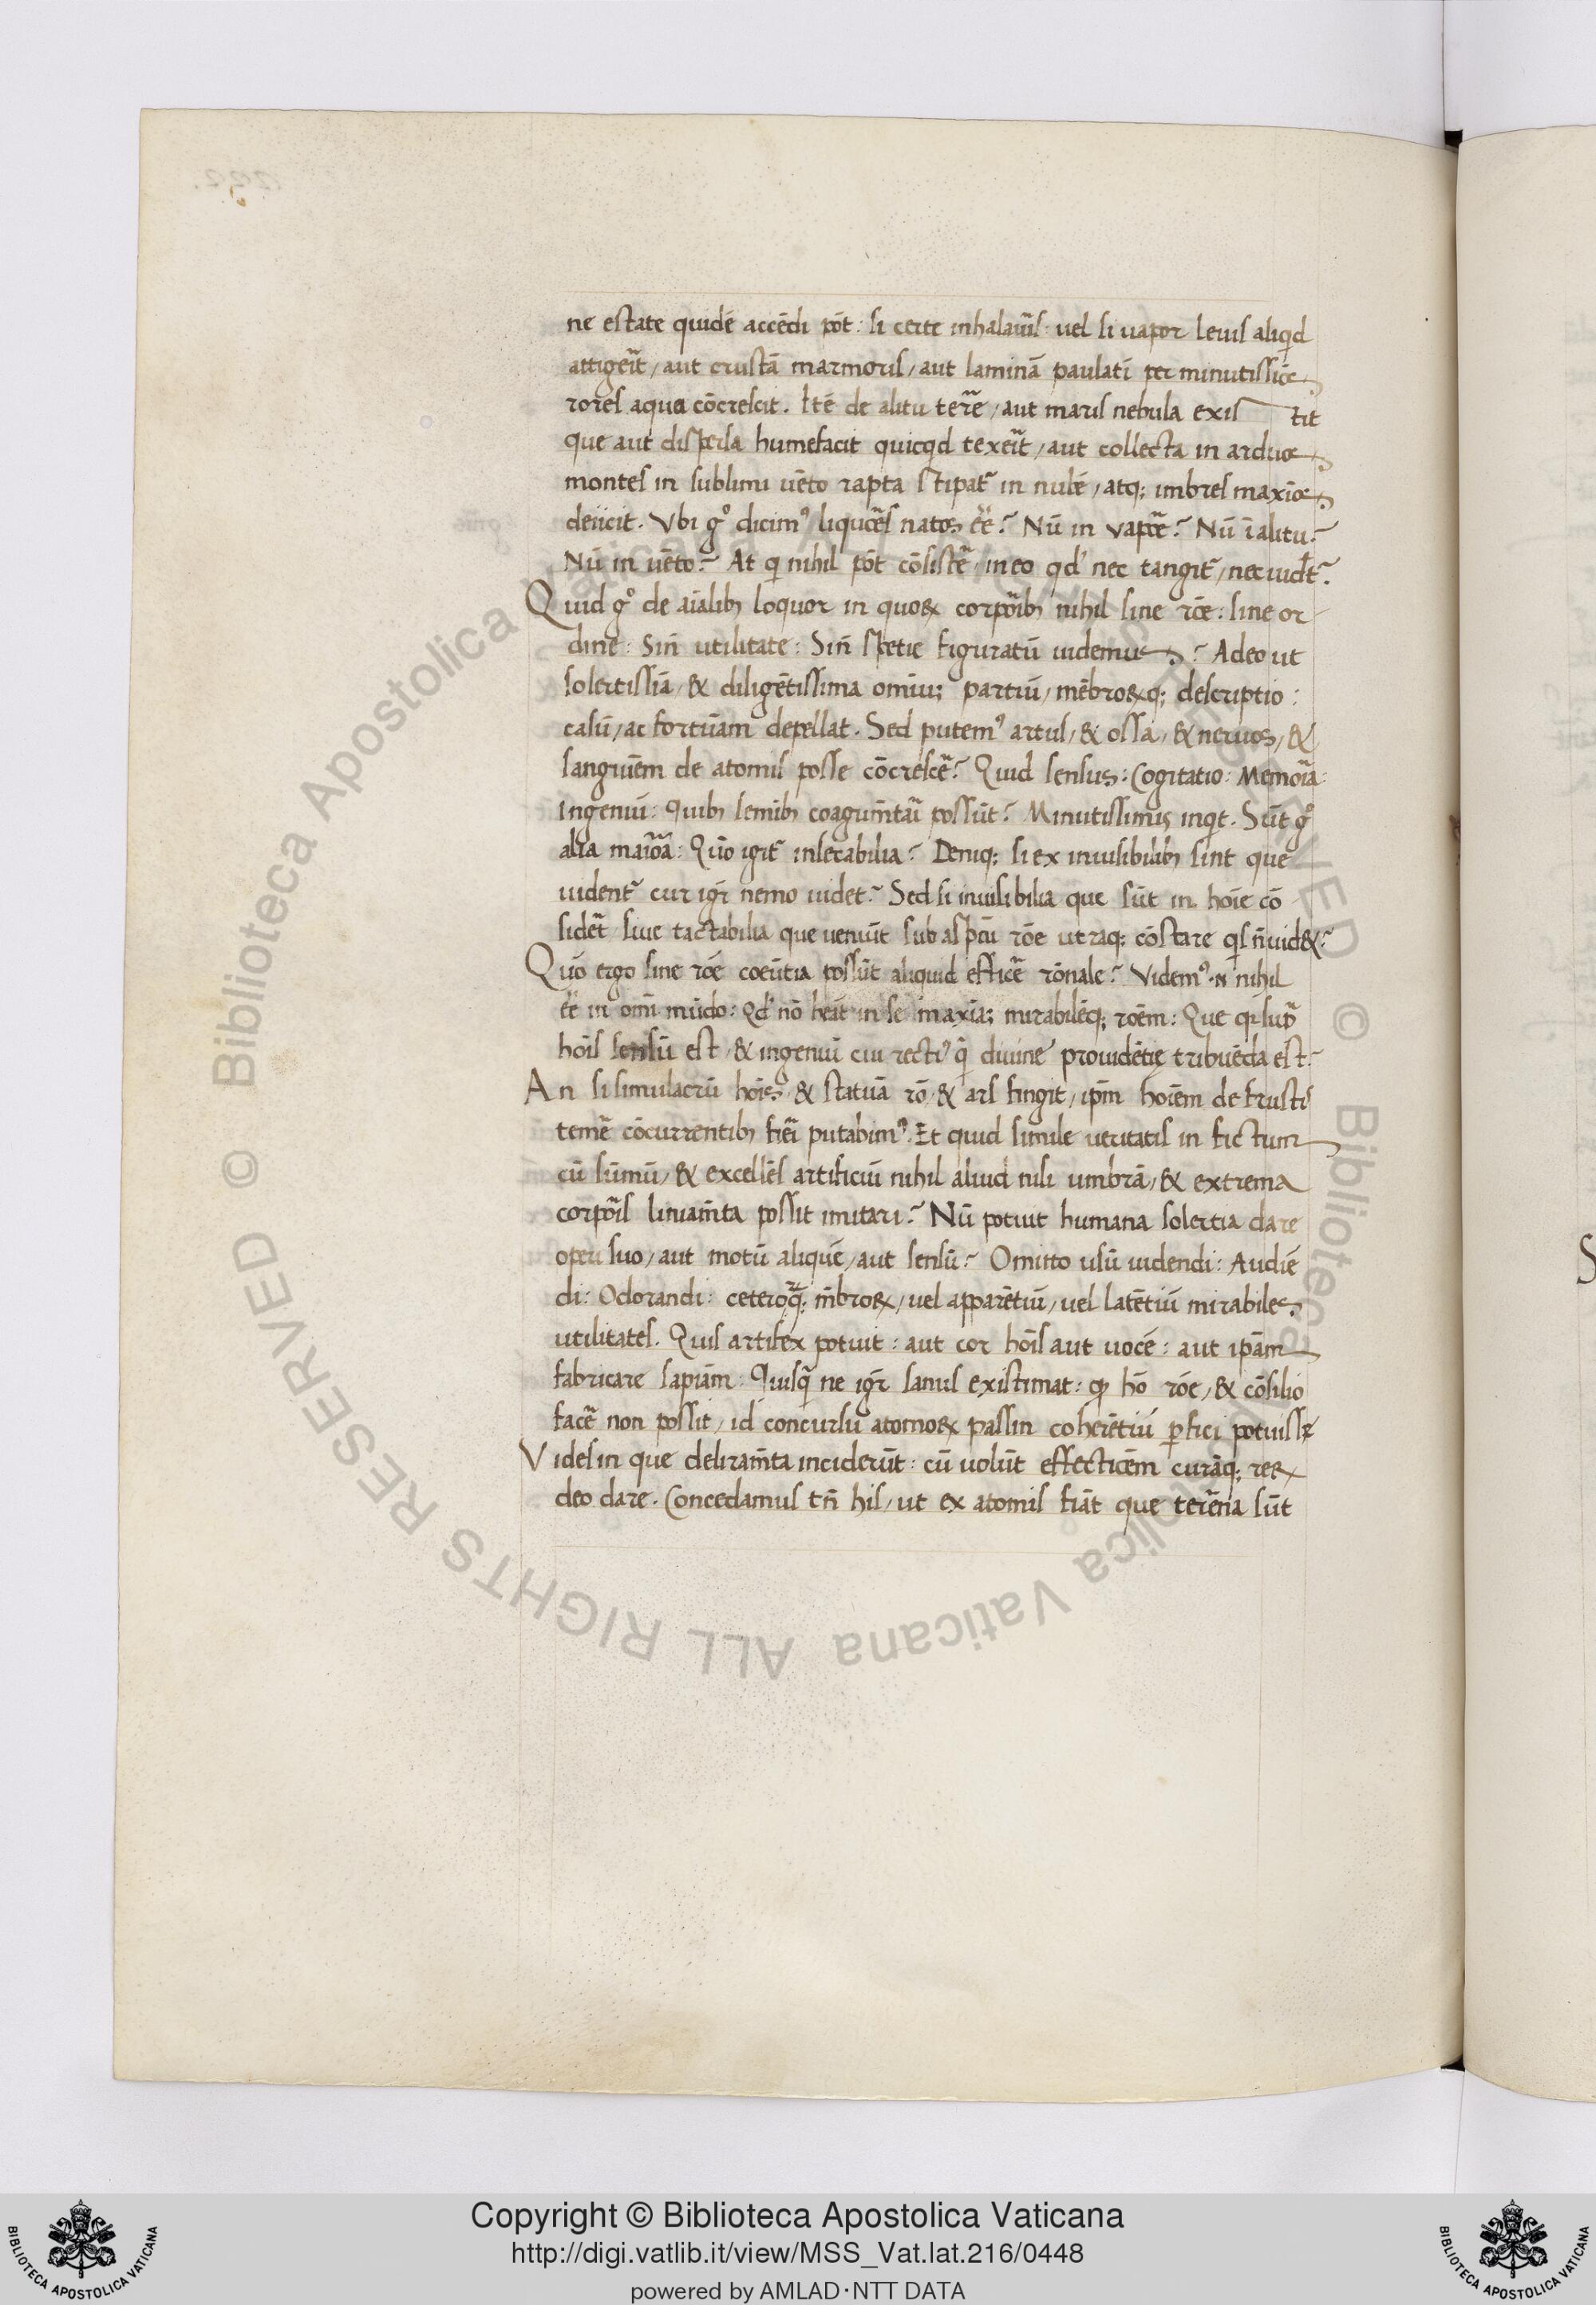 ne estate quidē accēdi pōt: si certe inhalaue͛is: uel si uapor leuis aliq̇d
attige͛it / aut crustā marmoris / aut laminā paulatī per minutissīos
rores aqua cōcrescit. Itē de alitu terre͛ / aut maris nebula exis tit
que aut dispersa humefacit quicq̇d texe͛it / aut collecta in arduos
montes in sublimi uēto rapta stipat͛ in nubē / atq; imbres maxīos
deiicit. Vbi gͦ dicimꝰ liquores natos ēē? Nū in vapo͛e? Nū ī alitu?
Nū in uēto? At qi nihil pōt cōsiste͛ in eo qd' nec tangit͛ / nec uidet͛.
Quid gͦ de aīalibꝫ loquor in quoꝝ corpo͛ibꝫ nihil sine rōe: sine or
dine: Sin̄ utilitate: Sin̄ spetie figuratū uidemus? Adeo ut
solertissīa / & diligētissima omīuꝫ partiū / mēbroꝝq; descriptio:
casū / ac fortūam depellat. Sed putemꝰ artus / & ossa / & neruos / &
sanguīem de atomis posse cōcresce͛? Quid sensus: Cogitatio: Memo͛ia:
Ingeniū: Quibꝫ semībꝫ coagum̄tai͛ possūt? Minutissimis inqt. Sūt gͦ
alia maio͛a: Quō igit͛ insecabilia? Deniq; si ex inuisibilibꝫ sint que
uident͛ cur igr̄ nemo uidet? Sed si inuisibilia que sūt in hoīe cō
side͛t siue tactabilia que ueniūt sub aspctū rōe utraq; cōstare qis n̄ uid&?
Quō ergo sine rōe coeūtia possūt aliquid effice͛ rōnale? Videmꝰ .n. nihil
ēē in omī mūdo: Qd' nō heāt in se maxīaꝫ mirabilēq; roēm: Que qi sup͛
hoīs sensū est / & ingeniū cui rectiꝰ q̄ diuine prouidētię tribuēda est?
An si simulacrū hoīs / & statuā rō / & ars fingit / ipm̄ hoīem de frustis
teme͛ cōcurrentibꝫ fie͛i putabimꝰ. Et quid simile ueritatis in fictum
cū sūmū / & excellēs artificiū nihil aliud nisi umbrā / & extrema
corpo͛is liniam̄ta possit imitari? Nū potuit humana solertia dare
operi suo / aut motū aliquē / aut sensū? Omitto usū uidendi: Audiē
di: Odorandi: m̄broꝝ / uel apparētiū / uel latētiū mirabiles
utilitates. Quis artifex potuit: aut cor hoīs aut uocē: aut ipām
fabricare sapiām: Quisq̄ ne igr̄ sanus existimat: ꝙ hō rōe / & cōsilio
face͛ non possit / id concursu atomoꝝ passin coherētiū ꝑfici potuisse
Vides in que deliram̄ta inciderūt: cū uolūt effecticēm curāq; reꝝ
deo dare. Concedamus tn̄ his / ut ex atomis fiāt que terēna sūt
Copyright © Biblioteca Apostolica Vaticana
http://digi.vatlib.it/view/MSS_Vat.lat.216/0448
powered by AMLAD·NTT DATA